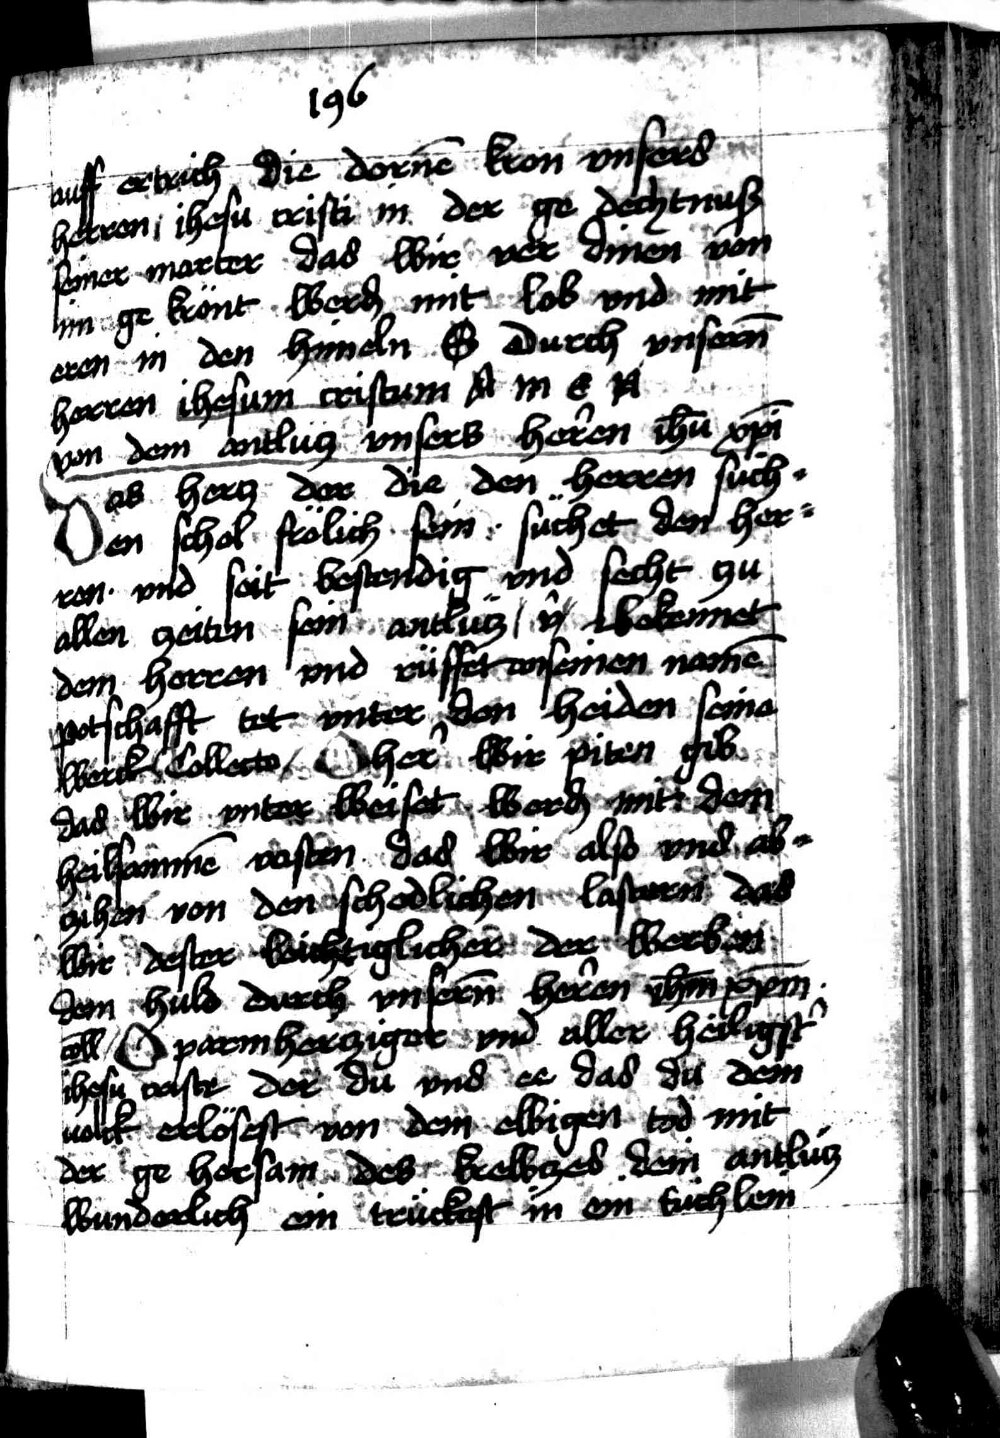 196
auff ertrich die dornē kron vnsers
herren ihesu cristi in der ge dechtnuß
seiner marter das wir ver dinen von
im ge krönt werdn mit lob vnd mit
eren in den himeln Durch vnsern̄
herren ihesum cristum A m e N
von dem antlucz vnsers herren ih̄u xp̄i
Das hertz der die den herren such-
en schol frölich sein · suchet den her-
ren · vnd seit bestendig vnd secht zu
allen zeiten sein antlucz / vn̄ bekennet
dem herren vnd rüffet an seinen namē
potschafft tet vnter den heiden seine
werck Collecta / O her wir piten gib
das wir vnter weiset werdn mit dem
heilsammē vasten das wir also vns ab-
zihen von den schedlichen lastern das
wir dester leichtiglicher der werben
dein huld durch vnsern̄ herren ih̄m xp̄m ·
coll / O parmhercziger vnd aller heiligst
ihesu criste der du vns ee das du dein
volck erlösest von dem ewigen tod mit
der ge horsam des krewczes dein antlucz
wunderlich ein trückest in ein tüchlein